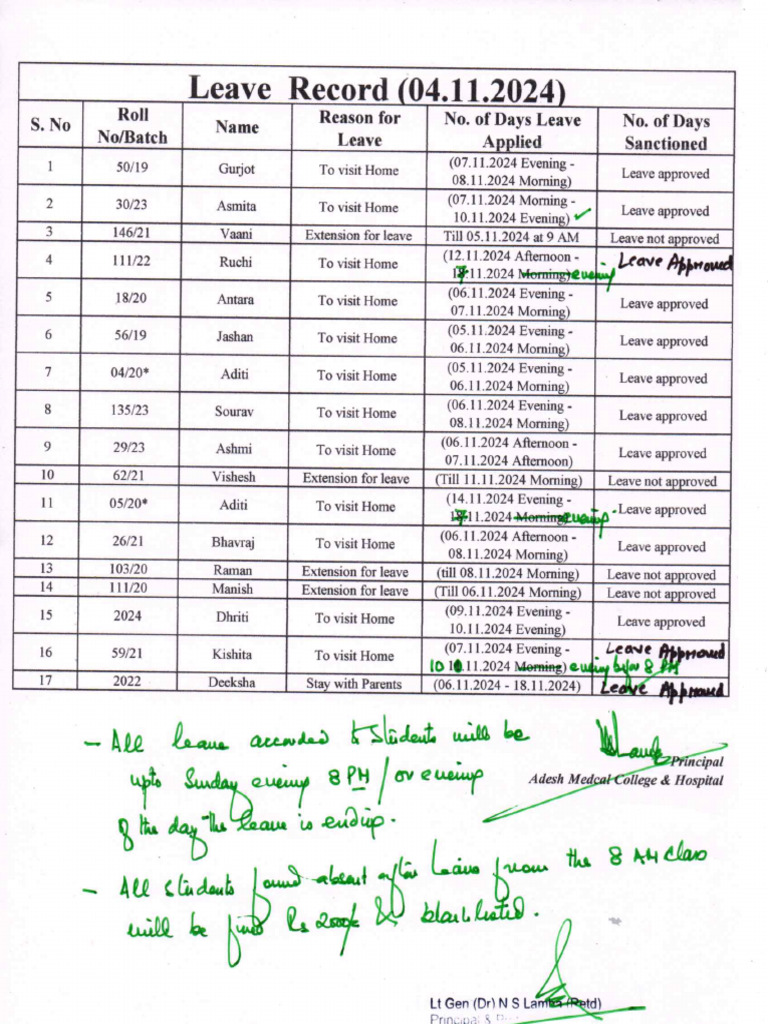 Leave Record (04.11.2024)
S. No Roll No/Batch Name Reason for Leave No. of Days Leave Applied No. of Days Sanctioned
1 50/19 Gurjot To visit Home (07.11.2024 Evening - 08.11.2024 Morning) Leave approved
2 30/23 Asmita To visit Home (07.11.2024 Morning - 10.11.2024 Evening) ✓ Leave approved
3 146/21 Vaani Extension for leave Till 05.11.2024 at 9 AM Leave not approved
4 111/22 Ruchi To visit Home (12.11.2024 Afternoon - 17.11.2024 Morning) evening Leave Approved
5 18/20 Antara To visit Home (06.11.2024 Evening - 07.11.2024 Morning) Leave approved
6 56/19 Jashan To visit Home (05.11.2024 Evening - 06.11.2024 Morning) Leave approved
7 04/20* Aditi To visit Home (05.11.2024 Evening - 06.11.2024 Morning) Leave approved
8 135/23 Sourav To visit Home (06.11.2024 Evening - 08.11.2024 Morning) Leave approved
9 29/23 Ashmi To visit Home (06.11.2024 Afternoon - 07.11.2024 Afternoon) Leave approved
10 62/21 Vishesh Extension for leave (Till 11.11.2024 Morning) Leave not approved
11 05/20* Aditi To visit Home (14.11.2024 Evening - 17.11.2024 Morning) evening Leave approved
12 26/21 Bhavraj To visit Home (06.11.2024 Afternoon - 08.11.2024 Morning) Leave approved
13 103/20 Raman Extension for leave (till 08.11.2024 Morning) Leave not approved
14 111/20 Manish Extension for leave (Till 06.11.2024 Morning) Leave not approved
15 2024 Dhriti To visit Home (09.11.2024 Evening - 10.11.2024 Evening) Leave approved
16 59/21 Kishita To visit Home (07.11.2024 Evening - 10 .11.2024 Morning) evening before 8 PM Leave Approved
17 2022 Deeksha Stay with Parents (06.11.2024 - 18.11.2024) Leave Approved
- All leave accorded to Students will be
upto Sunday evening 8 PM / or evening
of the day the leave is ending.
Principal
Adesh Medcal College & Hospital
- All students found absent after leave from the 8 AM class
will be fined Rs 2000/- & blacklisted.
Lt Gen (Dr) N S Lamba (Retd)
Principal &